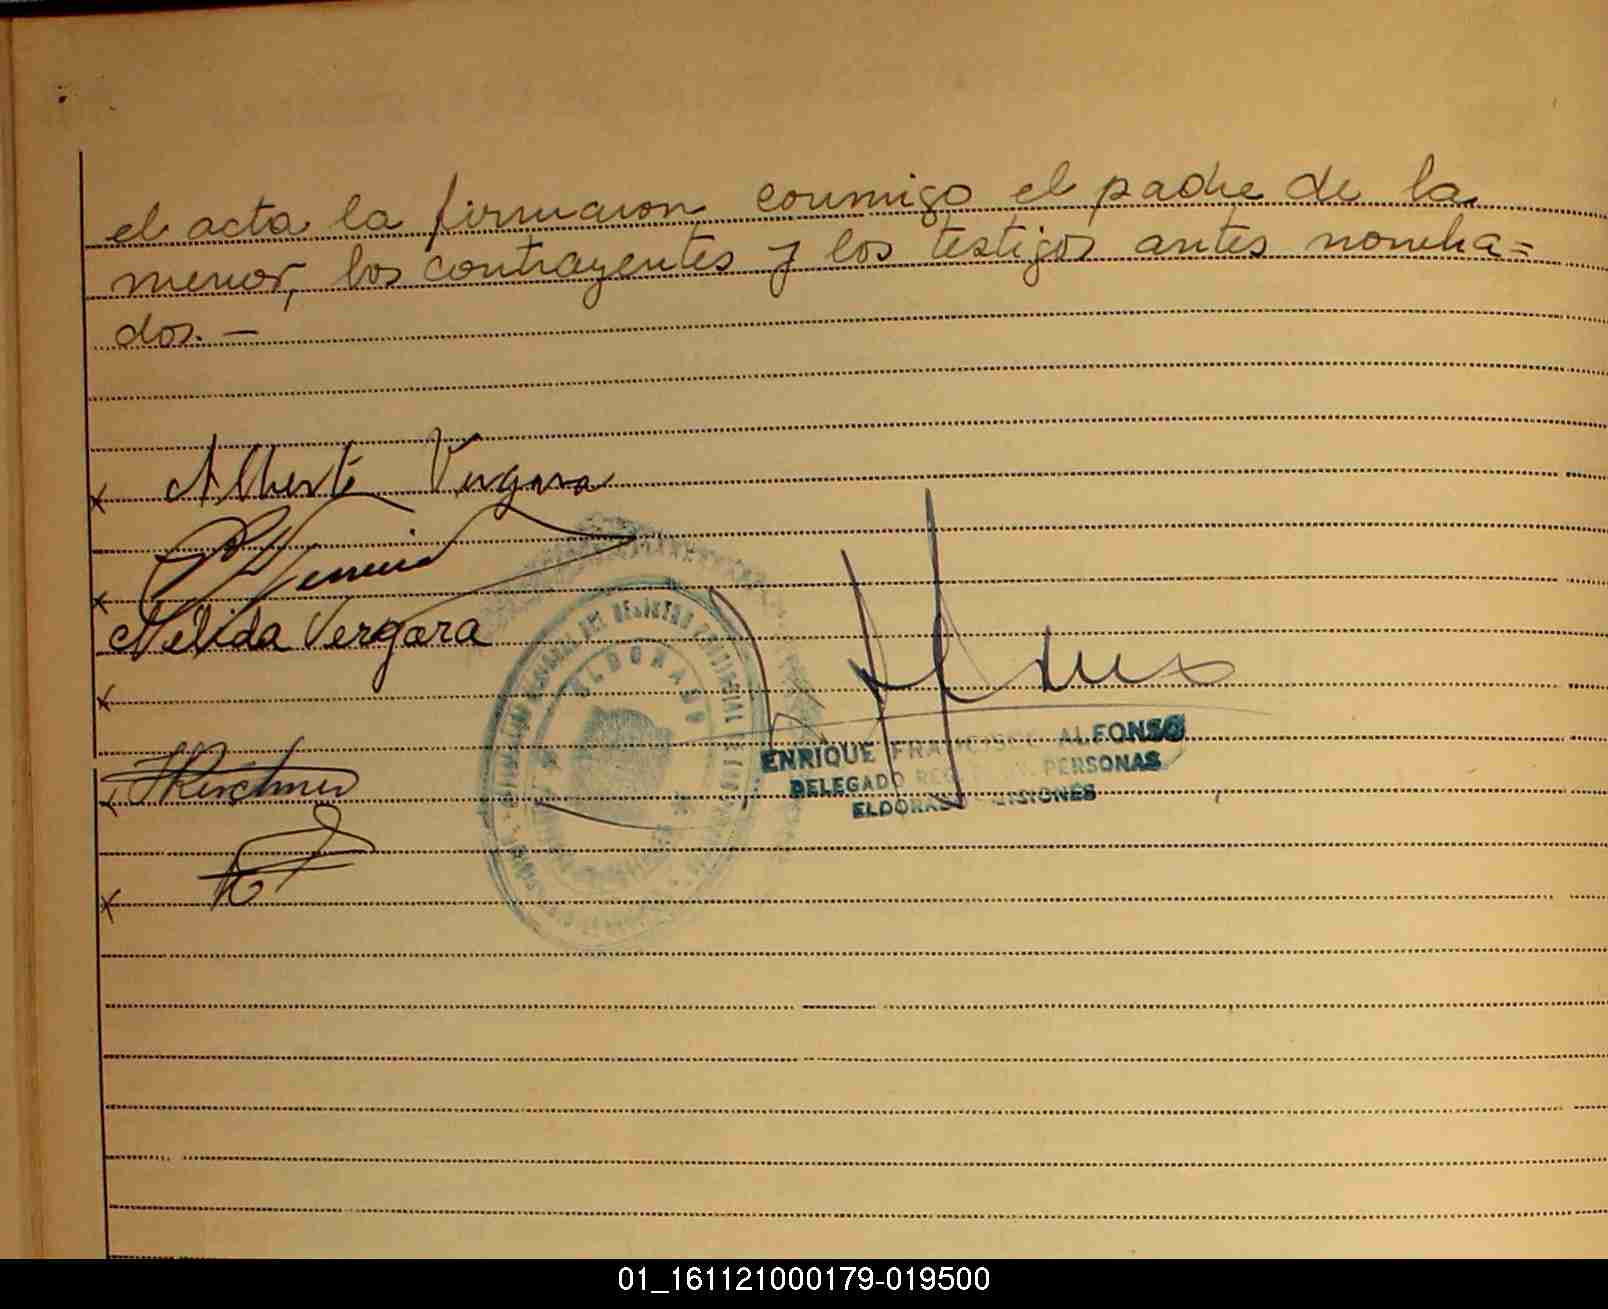 el acta la firmaron conmigo el padre de la
menor, los contrayentes y los testigos antes nombra=
dos. —
x Alberto Vergara
x
Nélida Vergara
x
ELDORADO
ENRIQUE FRANCISCO ALFONSO
DELEGADO PERSONAS
ELDORADO MISIONES
x HKirchner
x
01_161121000179-019500